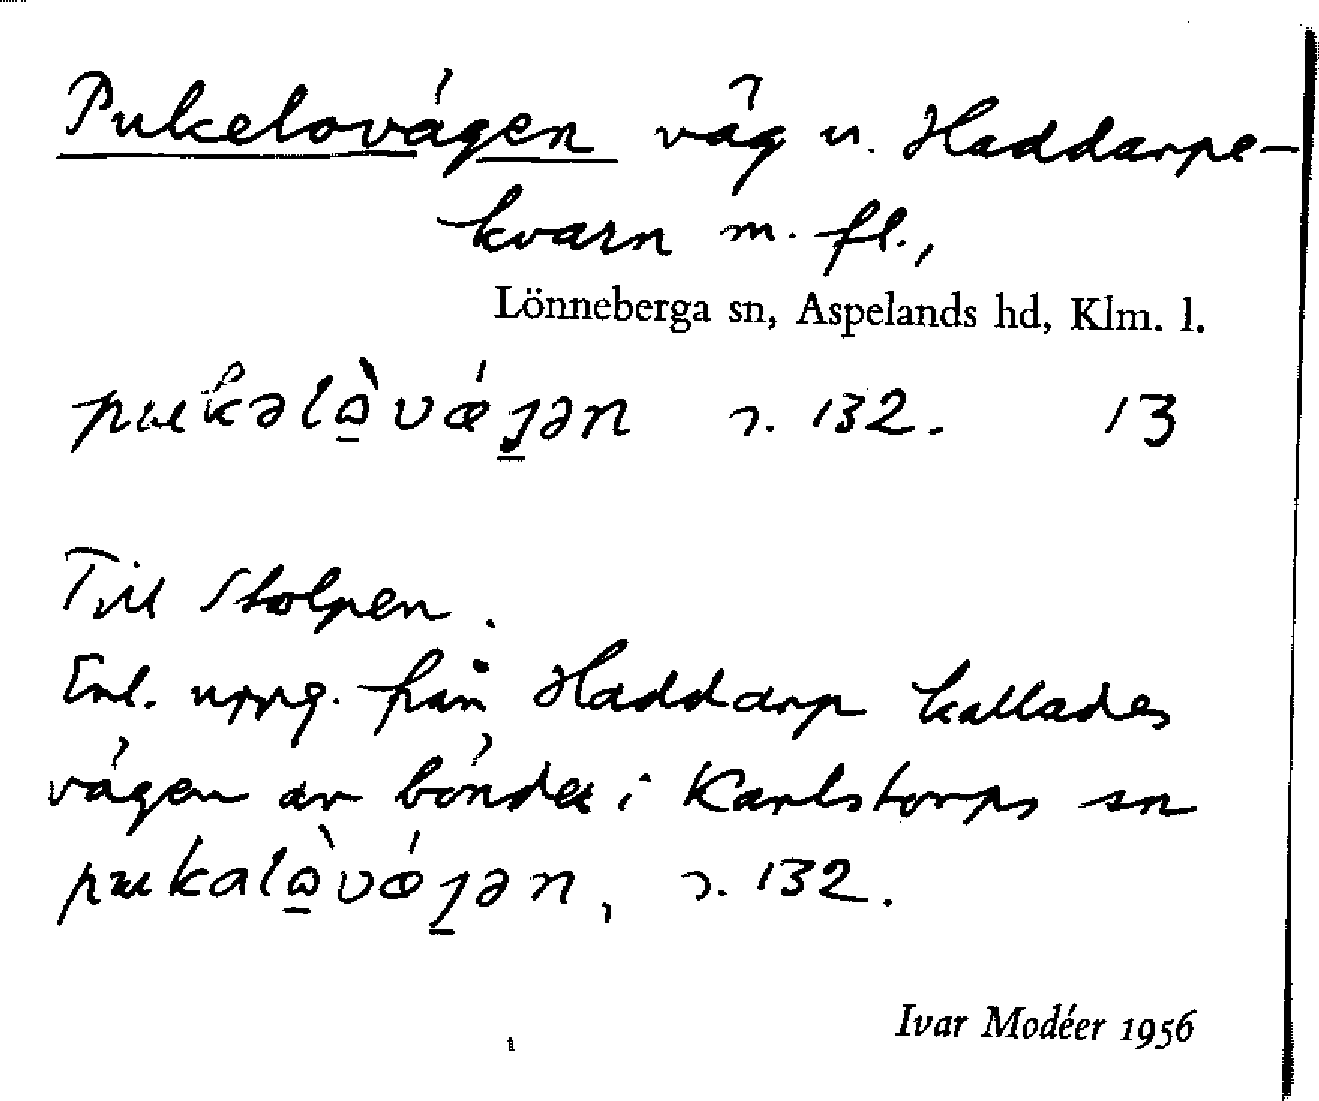 Pukelovägen väg u. Haddarpe-
kvarn m. fl.,
Lönneberga sn, Aspelands hd, Klm. l.
pukəlɷ̠̀vǿȷ̠ən s. 132. 13
Till Stolpen.
Enl. uppg. från Haddarp kallades
vägen av bönder i Karlstorps sn
pukalɷ̠̀vǿȷ̠ən, s. 132.
Ivar Modéer 1956